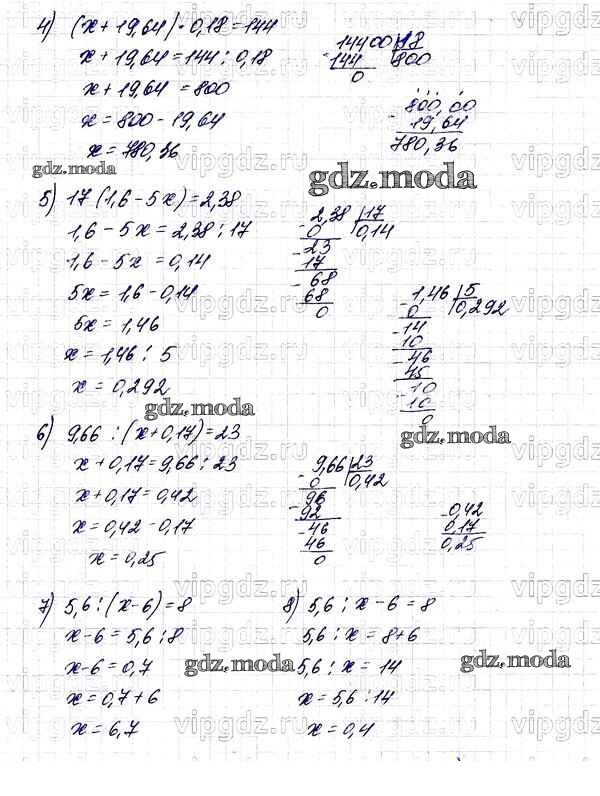 4) (x + 19,64) · 0,18 = 144
x + 19,64 = 144 : 0,18
x + 19,64 = 800
x = 800 - 19,64
x = 780,36
14400 | 18
- 144 | 800
0
800,00
- 19,64
780,36
gdz.moda
gdz.moda
5) 17 (1,6 - 5x) = 2,38
1,6 - 5x = 2,38 : 17
1,6 - 5x = 0,14
5x = 1,6 - 0,14
5x = 1,46
x = 1,46 : 5
x = 0,292
- 2,38 | 17
0 | 0,14
- 23
17
- 68
68
0
- 1,46 | 5
0 | 0,292
- 14
10
- 46
45
- 10
10
0
gdz.moda
gdz.moda
6) 9,66 : (x + 0,17) = 23
x + 0,17 = 9,66 : 23
x + 0,17 = 0,42
x = 0,42 - 0,17
x = 0,25
- 9,66 | 23
0 | 0,42
- 96
92
- 46
46
0
- 0,42
0,17
0,25
7) 5,6 : (x - 6) = 8
x - 6 = 5,6 : 8
x - 6 = 0,7
x = 0,7 + 6
x = 6,7
8) 5,6 : x - 6 = 8
5,6 : x = 8 + 6
5,6 : x = 14
x = 5,6 : 14
x = 0,4
gdz.moda
gdz.moda
vipgdz.ru